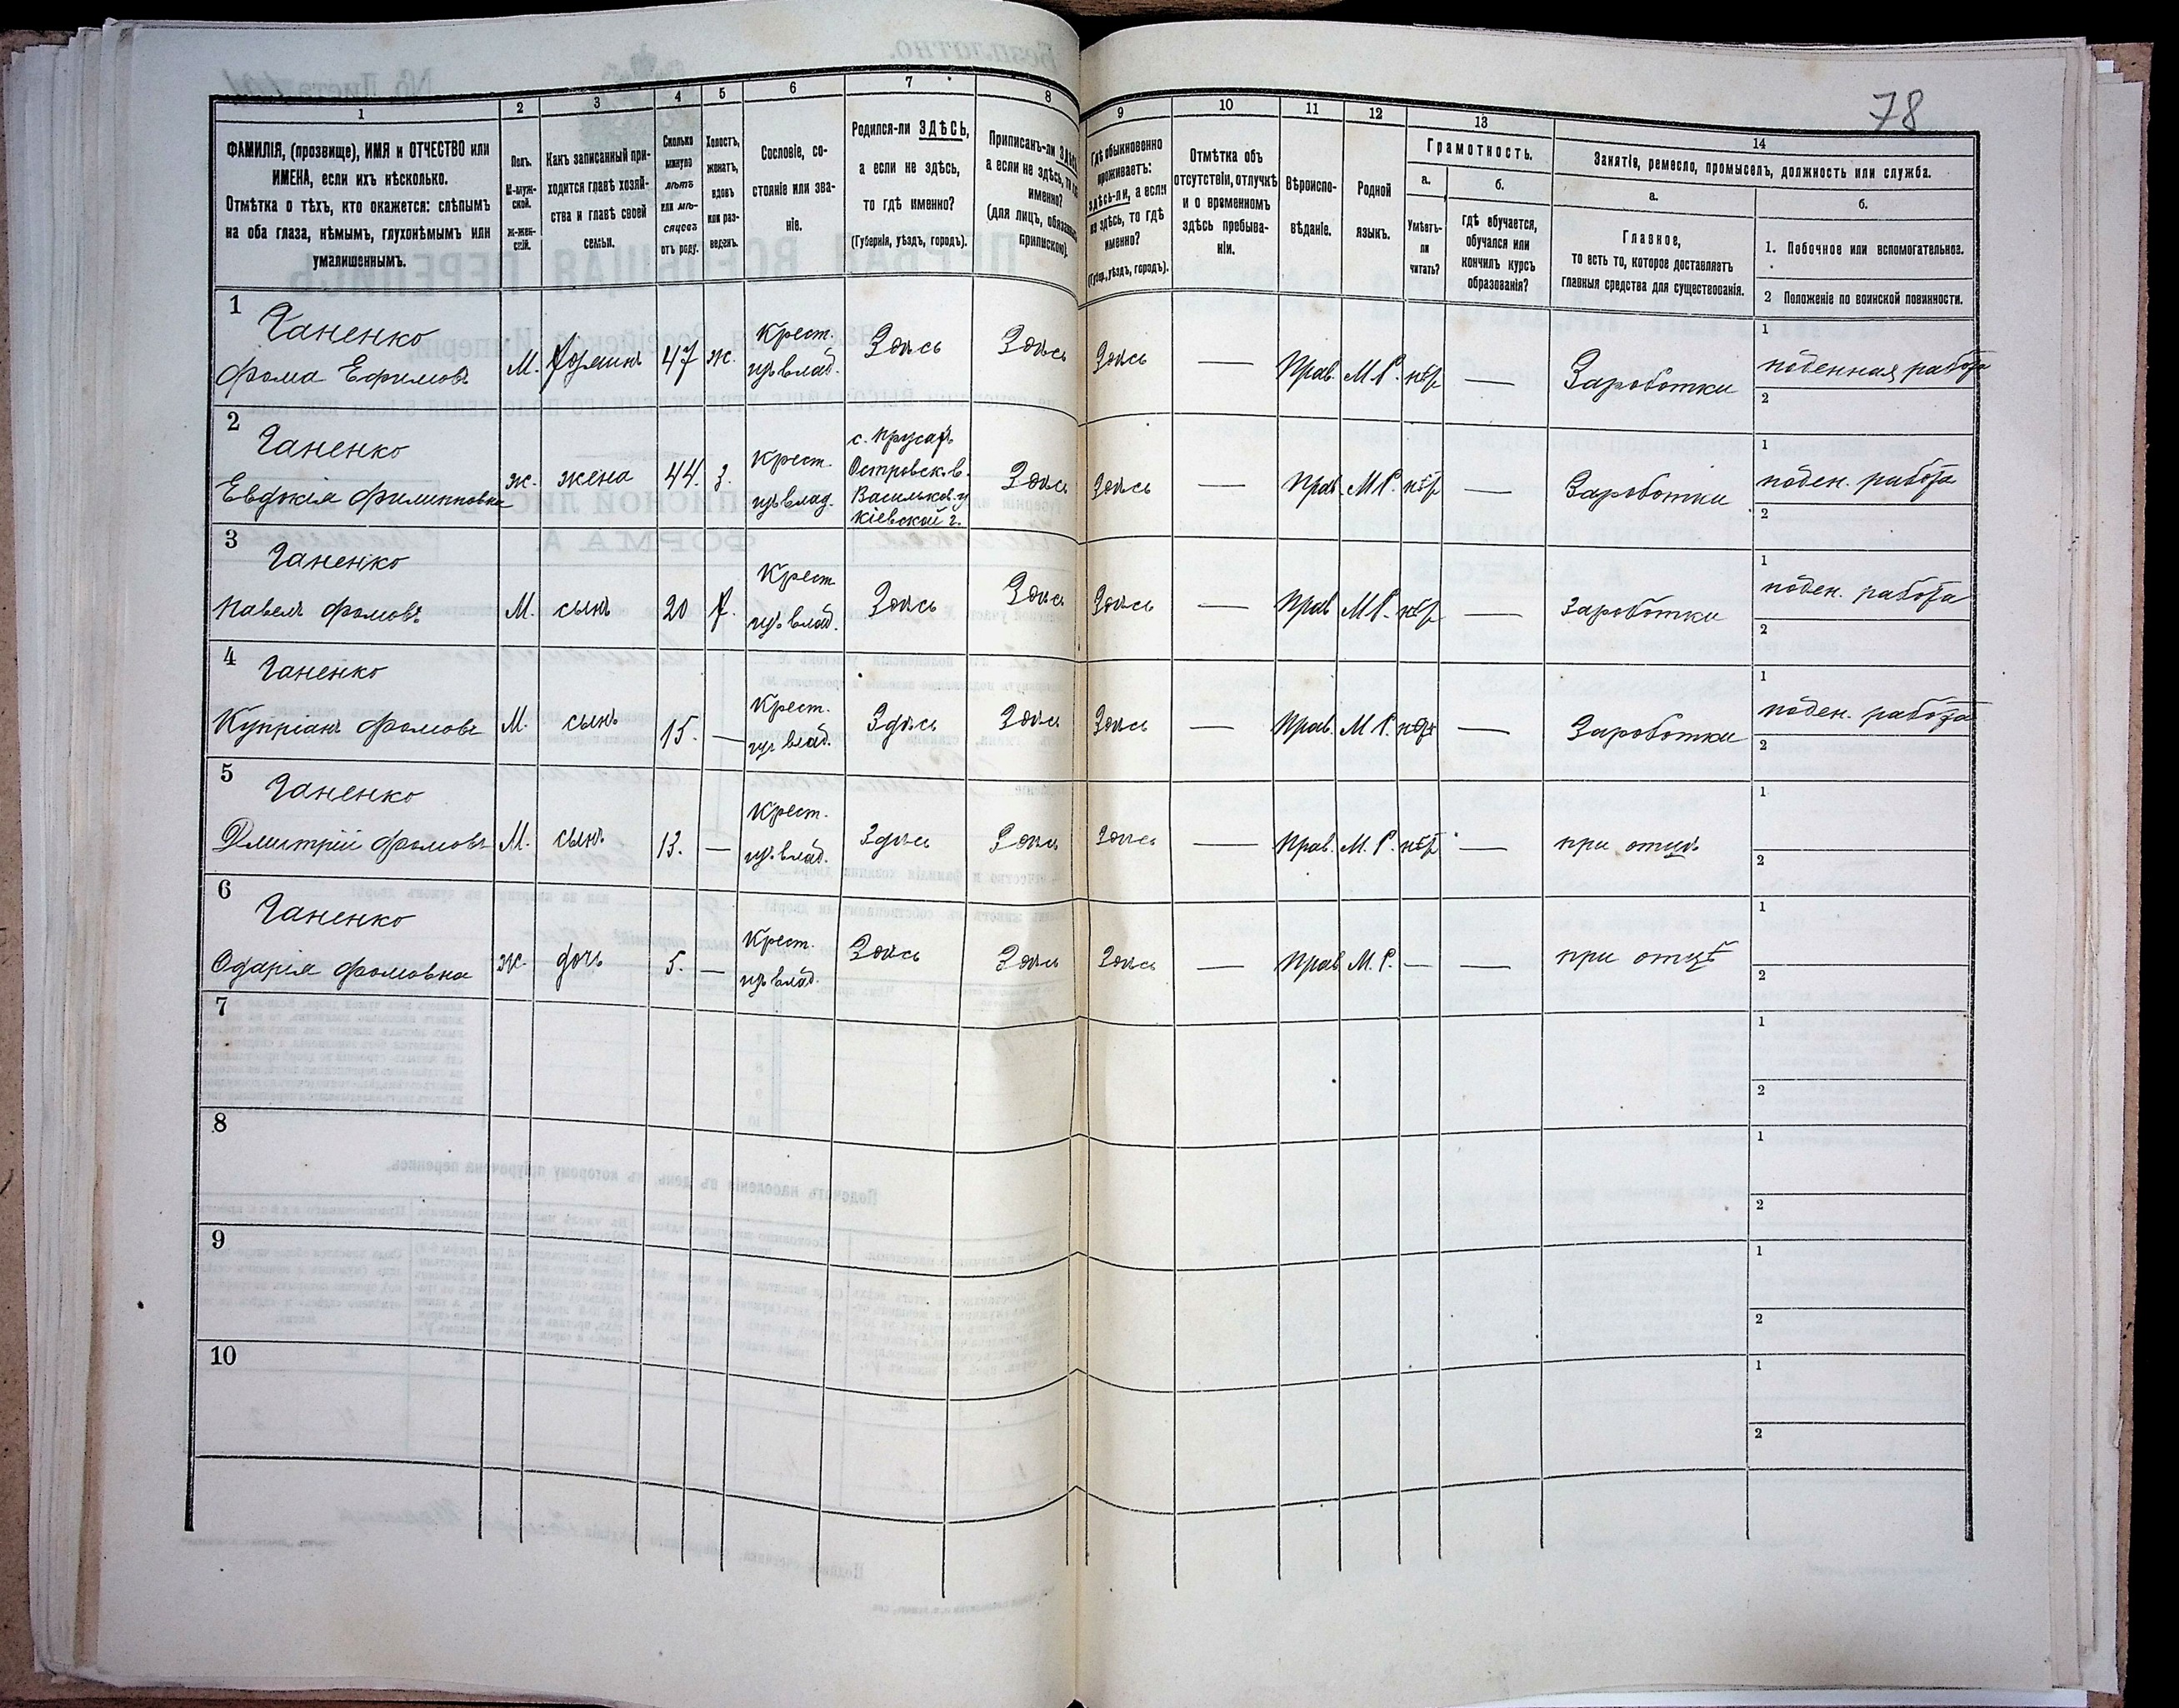 78
1
2
3
4
5
6
7
8
9
10
11
12
13
14
ФАМИЛІЯ, (прозвище), ИМЯ и ОТЧЕСТВО или
ИМЕНА, если ихъ нѣсколько.
Отмѣтка о тѣхъ, кто окажется: слѣпымъ
на оба глаза, нѣмымъ, глухонѣмымъ или
умалишеннымъ.
Полъ.
М-муж-
ской.
Ж-жен-
скій.
Какъ записанный при-
ходится главѣ хозяй-
ства и главѣ своей
семьи.
Сколько
минуло
лѣтъ
или мѣ-
сяцевъ
отъ роду.
Холостъ,
женатъ,
вдовъ
или раз-
веденъ.
Сословіе, со-
стояніе или зва-
ніе.
Родился-ли ЗДѢСЬ,
а если не здѣсь,
то гдѣ именно?
(Губернія, уѣздъ, городъ).
Приписанъ-ли ЗДѢСЬ,
а если не здѣсь, то гдѣ
именно?
(для лицъ, обязанныхъ
припискою).
Гдѣ обыкновенно
проживаетъ:
здѣсь-ли, а если
не здѣсь, то гдѣ
именно?
(Губер., уѣздъ, городъ).
Отмѣтка объ
отсутствіи, отлучкѣ
и о временномъ
здѣсь пребыва-
ніи.
Вѣроиспо-
вѣданіе.
Родной
языкъ.
Грамотность.
а.
Умѣетъ-
ли
читать?
б.
Гдѣ обучается,
обучался или
кончилъ курсъ
образованія?
Занятіе, ремесло, промыселъ, должность или служба.
а.
Главное,
то есть то, которое доставляетъ
главныя средства для существованія.
б.
1. Побочное или вспомогательное.
2 Положеніе по воинской повинности.
1
Ганенко
Фома Ефимовъ
М.
Хозяинъ
47
ж.
Крест.
изъ влад.
Здѣсь
Здѣсь
Здѣсь
—
Прав.
М.Р.
нѣтъ
—
Заработки
1
поденная работа
2
2
Ганенко
Евдокія Филипповна
ж.
жена
44.
з.
Крест.
изъ влад.
с. Прусы
Островск. в.
Васильков. у
Кіевской г.
Здѣсь
Здѣсь
—
Прав.
М.Р.
нѣтъ
—
Заработки
1
поден. работа
2
3
Ганенко
Павелъ Фомовъ
М.
сынъ
20
х.
Крест
изъ влад.
Здѣсь
Здѣсь
Здѣсь
—
Прав
М.Р.
нѣтъ
—
Заработки
1
поден. работа
2
4
Ганенко
Купріанъ Фомовъ
М.
сынъ
15.
—
Крест.
изъ влад.
Здѣсь
Здѣсь
Здѣсь
—
Прав.
М.Р.
нѣтъ
—
Заработки
1
поден. работа
2
5
Ганенко
Дмитрій Фомовъ
М.
сынъ
13.
—
Крест.
изъ влад.
Здѣсь
Здѣсь
Здѣсь
—
Прав.
М.Р.
нѣтъ
—
при отцѣ
1
2
6
Ганенко
Одарія Фомовна
ж.
дочь
5.
—
Крест.
изъ влад.
Здѣсь
Здѣсь
Здѣсь
—
Прав
М.Р.
—
—
при отцѣ
1
2
7
1
2
8
1
2
9
1
2
10
1
2